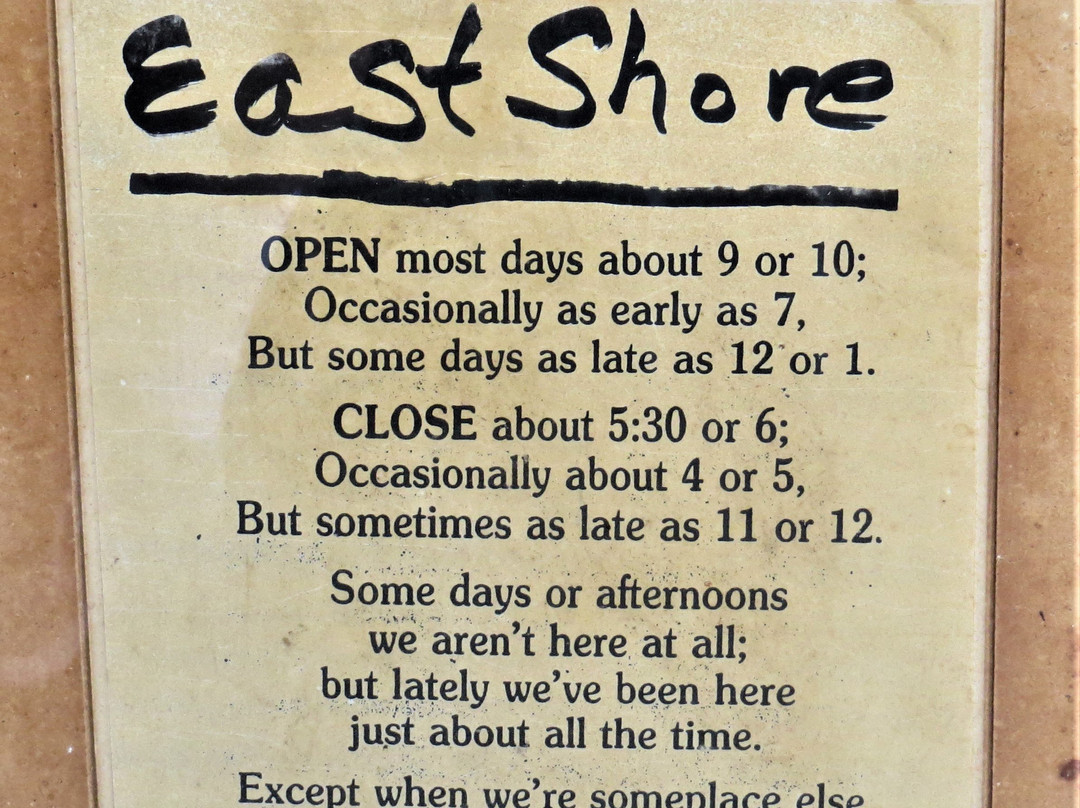 East Shore
OPEN most days about 9 or 10;
Occasionally as early as 7,
But some days as late as 12 or 1.
CLOSE about 5:30 or 6;
Occasionally about 4 or 5,
But sometimes as late as 11 or 12.
Some days or afternoons
we aren't here at all;
but lately we've been here
just about all the time.
Except when we're someplace else